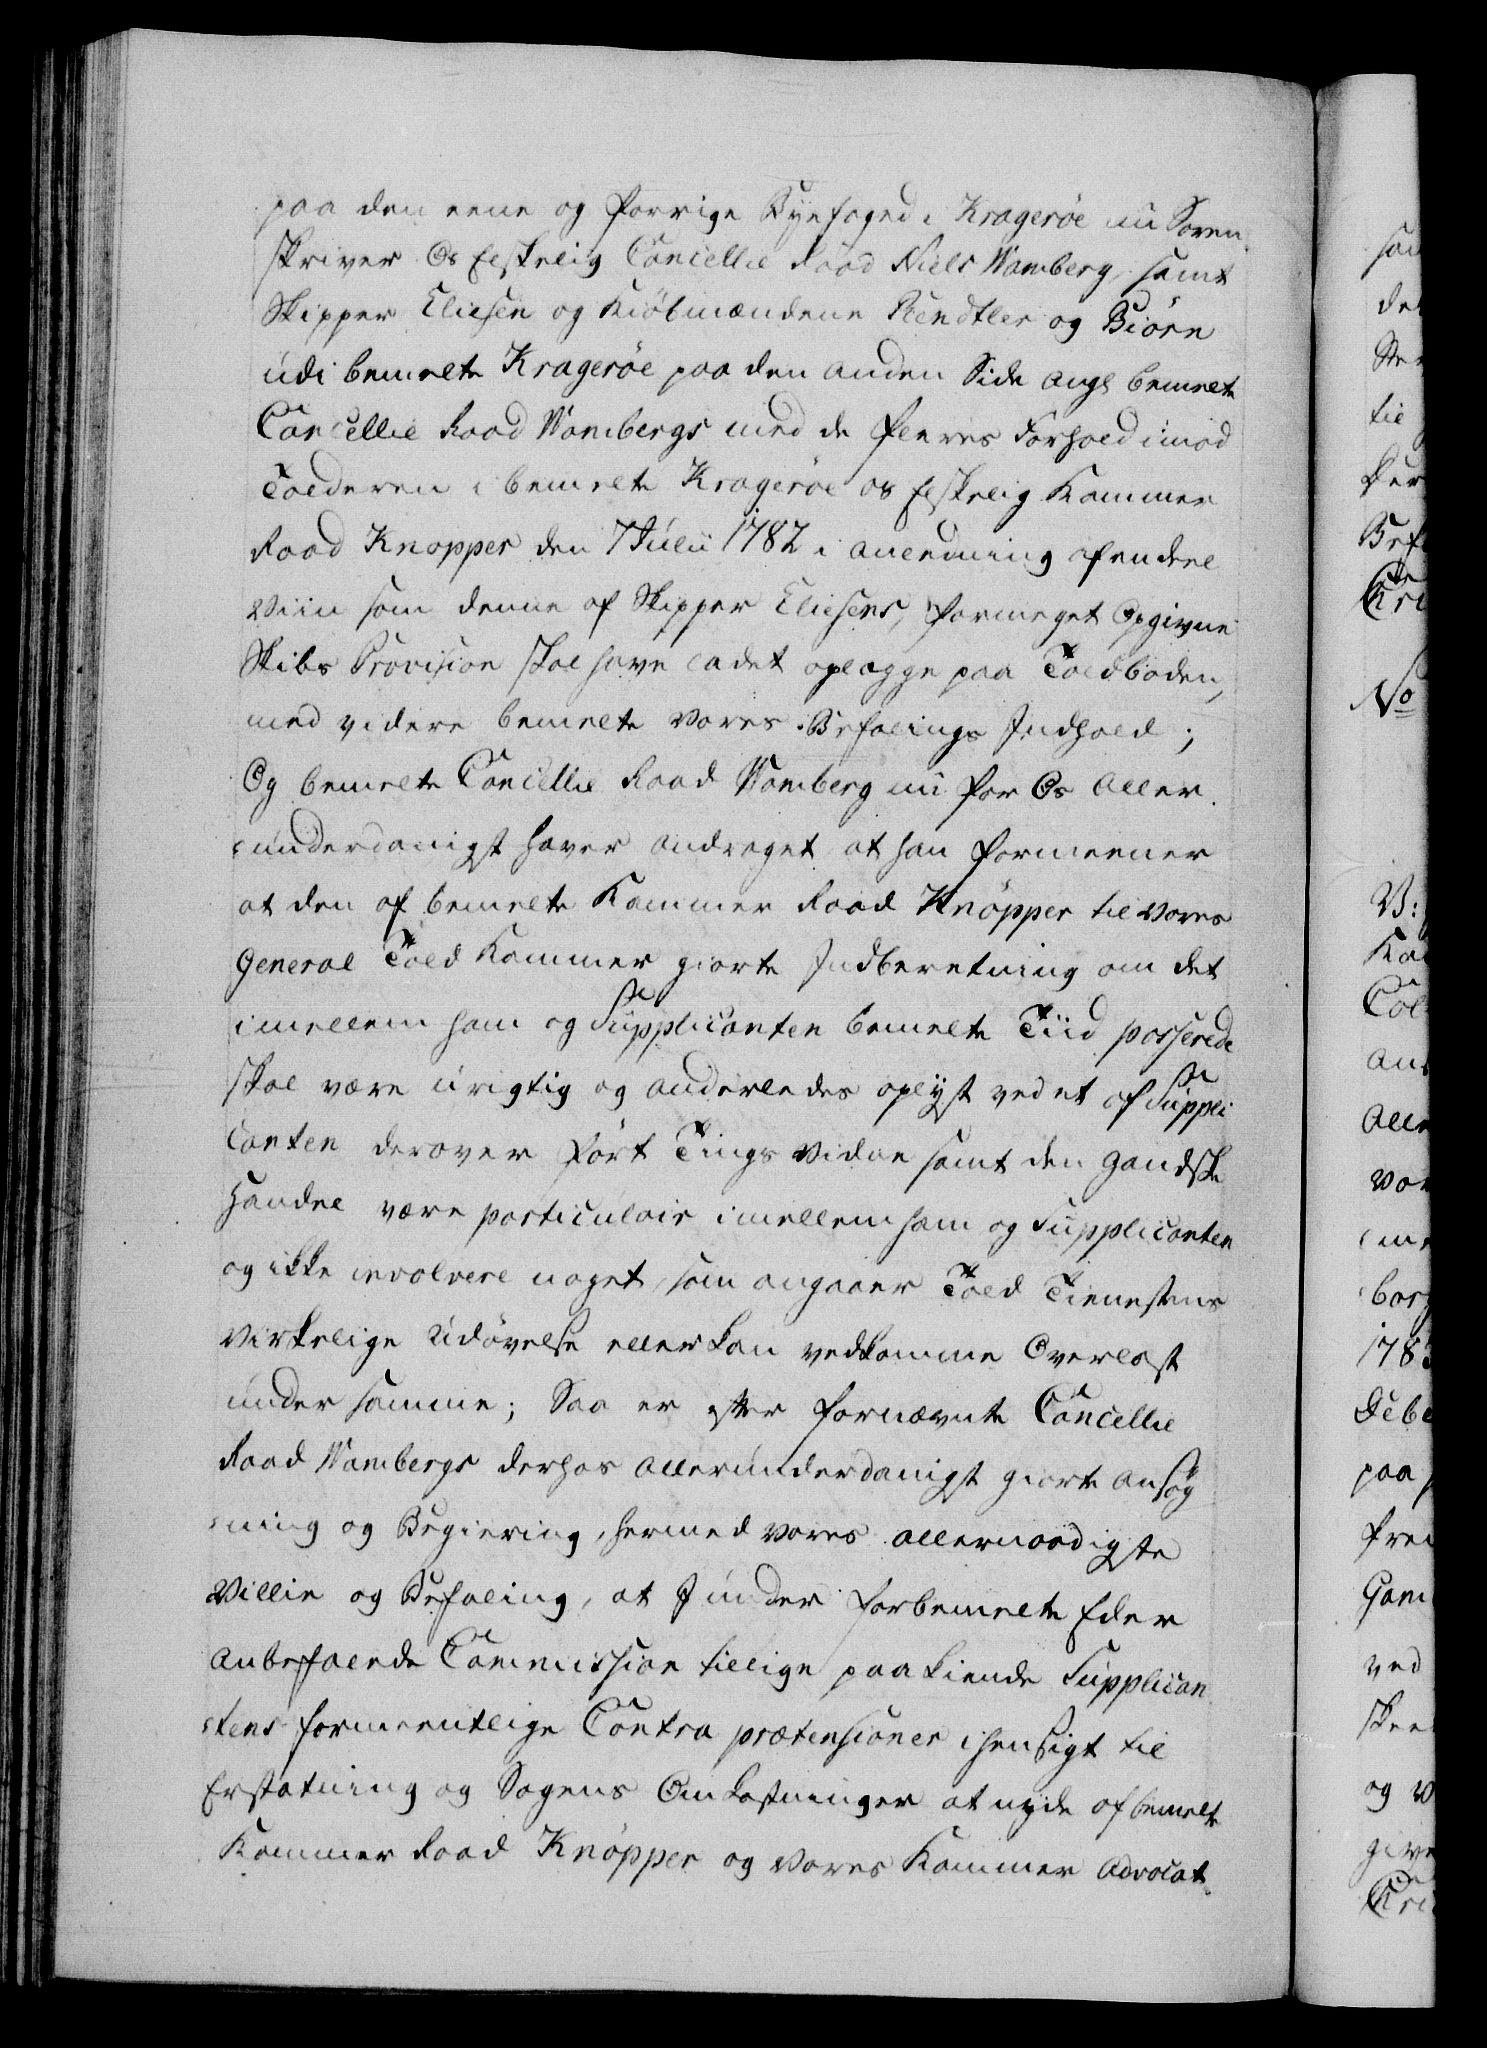 paa den eene og forrige Byefoged i Kragerøe nu Soren
skriver Os Elskelig Cancellie Raad Niels Wamberg, samt
Skipper Eliesen og Kiøbmændene Rendtler og Biørn
udi bemelte Kragerøe paa den anden Side ang: bemelte
Cancellie Raad Wambergs med de fleeres Forhold imod
Tolderen i bemelte Kragerøe os Elskelig Kammer
Raad Knøpper den 7 Julii 1782 i anledning af en deel
Viin som denne af Skipper Eliesens, formeget Opgivne
Skibs Provision skal have ladet oplægge paa Toldboden,
med videre bemelte Vores Befalings Indhold;
Og bemelte Cancellie Raad Wamberg nu for Os Aller
underdanigst haver andraget at han formeener
at den af bemelte Kammer Raad Knøpper til Vores
General Told Kammer giorte Indberetning om det
imellem ham og Supplicanten bemelte Tiid passerede
skal være urigtig og anderledes oplyst ved et af Suppli
canten derover ført Tings Vidne samt den gandske
Handel være particulair imellem ham og Supplicanten
og ikke involvere noget, som angaaer Told Tienestens
Virkelige Udøvelse eller kan vedkomme Overlast
under samme; Saa er efter fornævnte Cancellie
Raad Wambergs derhos allerunderdanigst giorte Ansøg
ning og Begiering, hermed Vores allernaadigste
Villie og Befaling, at I under forbemelte Eder
anbefalede Commission tillige paakiende Supplican
tens formeentlige Contra prætensioner i henseigt til
Erstatning og Sagens Omkostninger at nyde af bemelte
Kammer Raad Knøpper og Vores Kammer Advocat